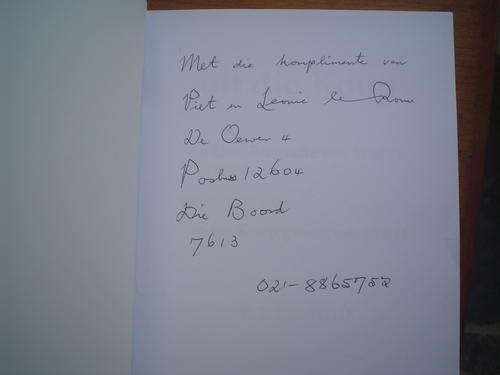 Met die komplimente van
Piet en Leonie le Roux
De Oewer 4
Posbus 12604
Die Boord
7613
021-8865752